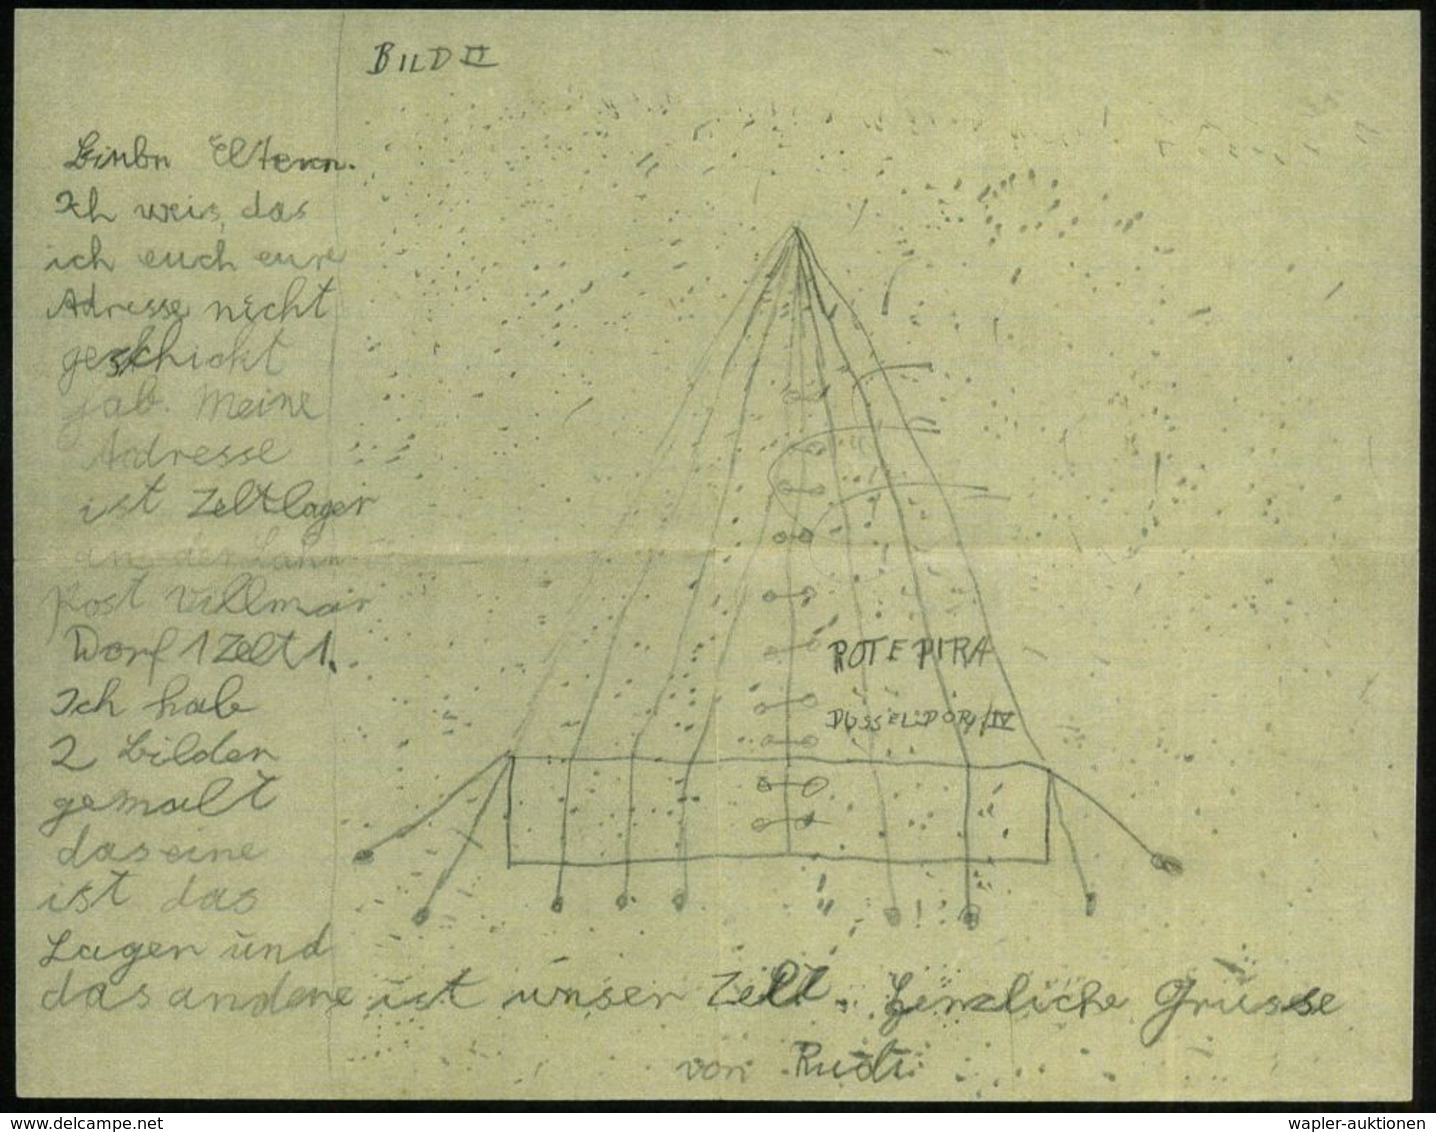 BILD II
Lieben Eltern.
Ich weis, das
ich euch eure
Adresse nicht
geschickt
hab. Meine
Adresse
ist Zeltlager
an der Lahn
Post Villmar
Dorf 1 Zelt 1.
Ich hab
2 Bilder
gemalt
das eine
ist das
Lager und
das andere ist unser Zelt. Herzliche Grüsse
von Rudi
ROTE PIRA
DÜSSELDORF/IV
www.delcampe.net
wapler-auktionen